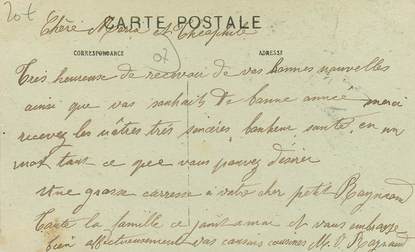 20t
CARTE POSTALE
Chère Maria et Théophile
CORRESPONDANCE
ADRESSE
07
Très heureuse de recevoir de vos bonnes nouvelles
ainsi que vos souhaits de bonne année merci
recevez les nôtres très sincères, bonheur santé, en un
mot tout ce que vous pouvez désirer
Une grosse carresse à votre cher petit Raymond
Toute la famille ce joint a moi et vous embrasse
bien affectueusement vos cousins cousines